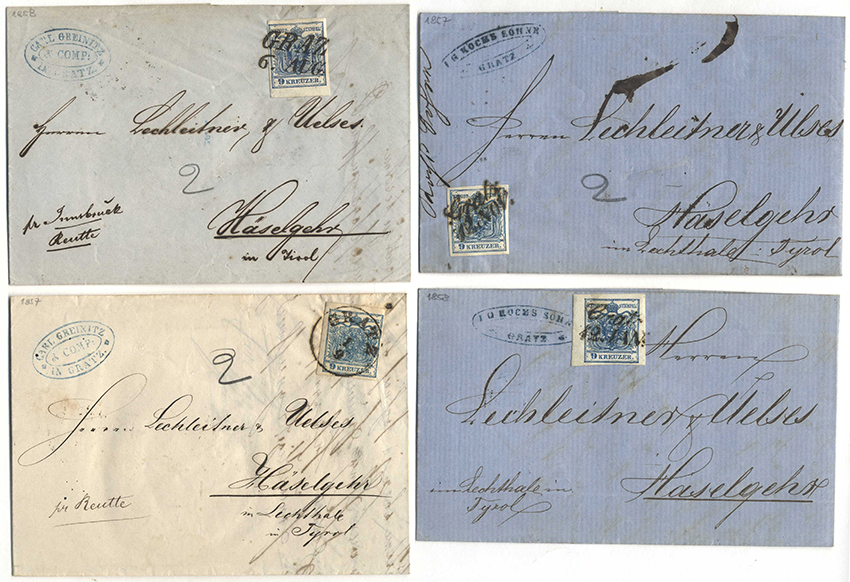 1858
CARL GREINITZ
& COMP:
IN GRATZ.
GRAZ
6 AUG.
9 KREUZER.
Herren Lechleitner & Uelses.
2
pr Innsbruck
Reutte
Häselgehr
in Tirol
1857
J G KOCHS SÖHNE
GRATZ
Herren Lechleitner & Uelses
2
Gratz
9 KREUZER.
Häselgehr
im Lechthale : Tyrol
1857
CARL GREINITZ
& COMP:
IN GRATZ.
GRATZ
9 KREUZER
2
Herren Lechleitner & Uelses
Häselgehr
in Lechthale
in Tyrol
pr Reutte
1853
J G KOCHS SÖHNE
GRATZ
STEMPEL
Graz
9 KREUZER.
Herren
Lechleitner & Uelses
im Lechthale in
Tyrol
Haselgehr